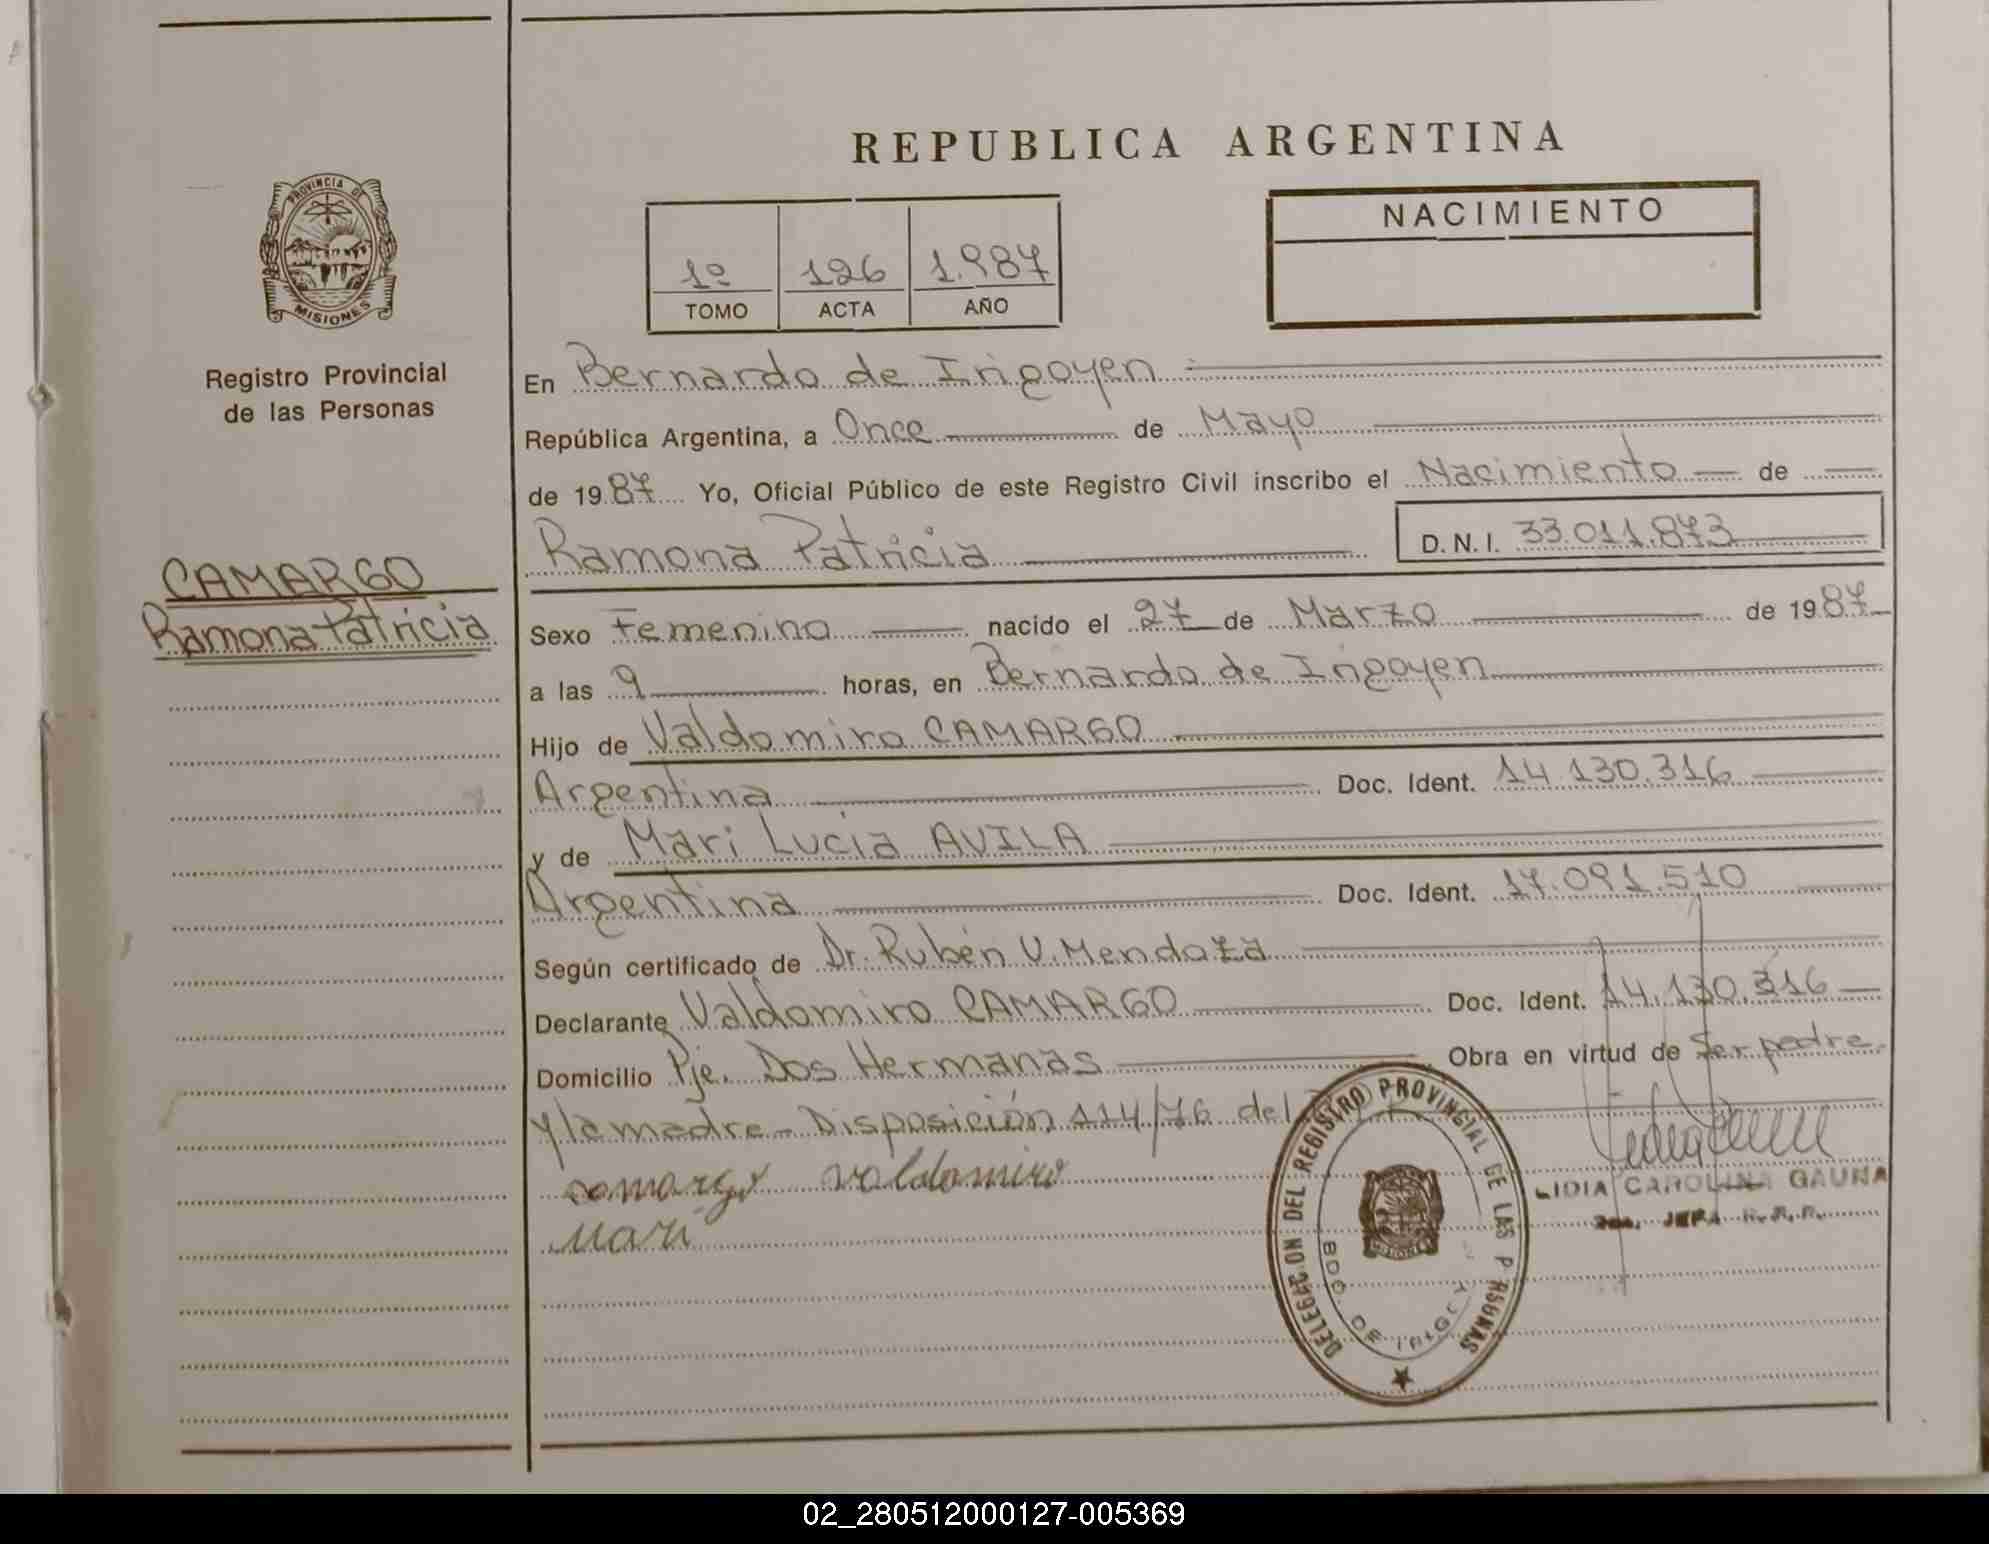 REPUBLICA ARGENTINA
PROVINCIA DE
MISIONES
Registro Provincial
de las Personas
1º 126 1.987
TOMO ACTA AÑO
NACIMIENTO
En Bernardo de Irigoyen
República Argentina, a Once de Mayo
de 1987 Yo, Oficial Público de este Registro Civil inscribo el Nacimiento de
Ramona Patricia D.N.I. 33.011.873
CAMARGO
Ramona Patricia
Sexo Femenino nacido el 27 de Marzo de 1987
a las 9 horas, en Bernardo de Irigoyen
Hijo de Valdomiro CAMARGO
Argentina Doc. Ident. 14.130.316
y de Mari Lucia AVILA
Argentina Doc. Ident. 17.091.510
Según certificado de Dr. Rubén V. Mendoza
Declarante Valdomiro CAMARGO Doc. Ident. 14.130.316
Domicilio Pje. Dos Hermanas Obra en virtud de Ser padre
y la madre - Disposición 114/76 del
camargo valdomiro
Mari
LIDIA CAROLINA GAUNA
JEFA R.P.P.
DELEGACION DEL REGISTRO PROVINCIAL DE LAS PERSONAS
BDO. DE IRIGOYEN
MISIONES
02_280512000127-005369